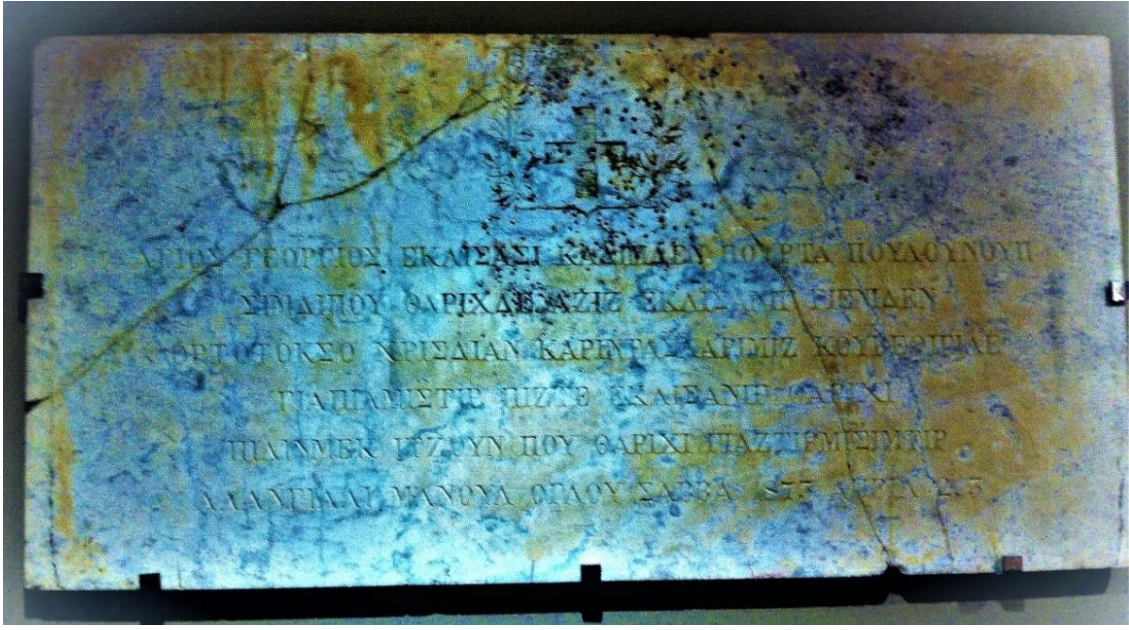 ΑΓΙΟΣ ΓΕΟΡΓΙΟΣ ΕΚΛΙΣΑΣΙ ΚΑΔΙΜΔΕΝ ΠΟΥΡΤΑ ΠΟΥΛΟΥΝΟΥΠ
ΣΙΜΔΙΠΟΥ ΘΑΡΙΧΔΕ ΑΖΙΖ ΕΚΛΙΣΑΜΙΖ ΓΙΕΝΙΔΕΝ
ΟΡΤΟΤΟΚΣΟ ΧΡΙΣΔΙΑΝ ΚΑΡΙΝΤΑΣΛΑΡΙΜΙΖ ΚΟΥΒΕΘΙΓΙΛΕ
ΓΙΑΠΙΛΜΙΣΤΙΡ ΕΚΛΙΣΑΝΙΝ ΘΑΡΙΧΙ
ΠΙΛΙΝΜΕΚ ΙΤΖΟΥΝ ΠΟΥ ΘΑΡΙΧΙ ΓΙΑΖΤΙΡΜΙΣΙΜΤΙΡ
ΑΛΑΝΓΙΑΛΙ ΜΑΝΟΥΛ ΟΓΛΟΥ ΣΑΒΒΑ 1873